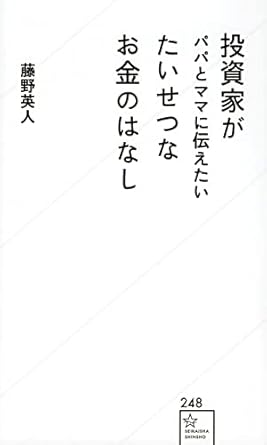 投資家が
パパとママに伝えたい
たいせつな
お金のはなし
藤野英人
248
SEIKAISHA
SHINSHO